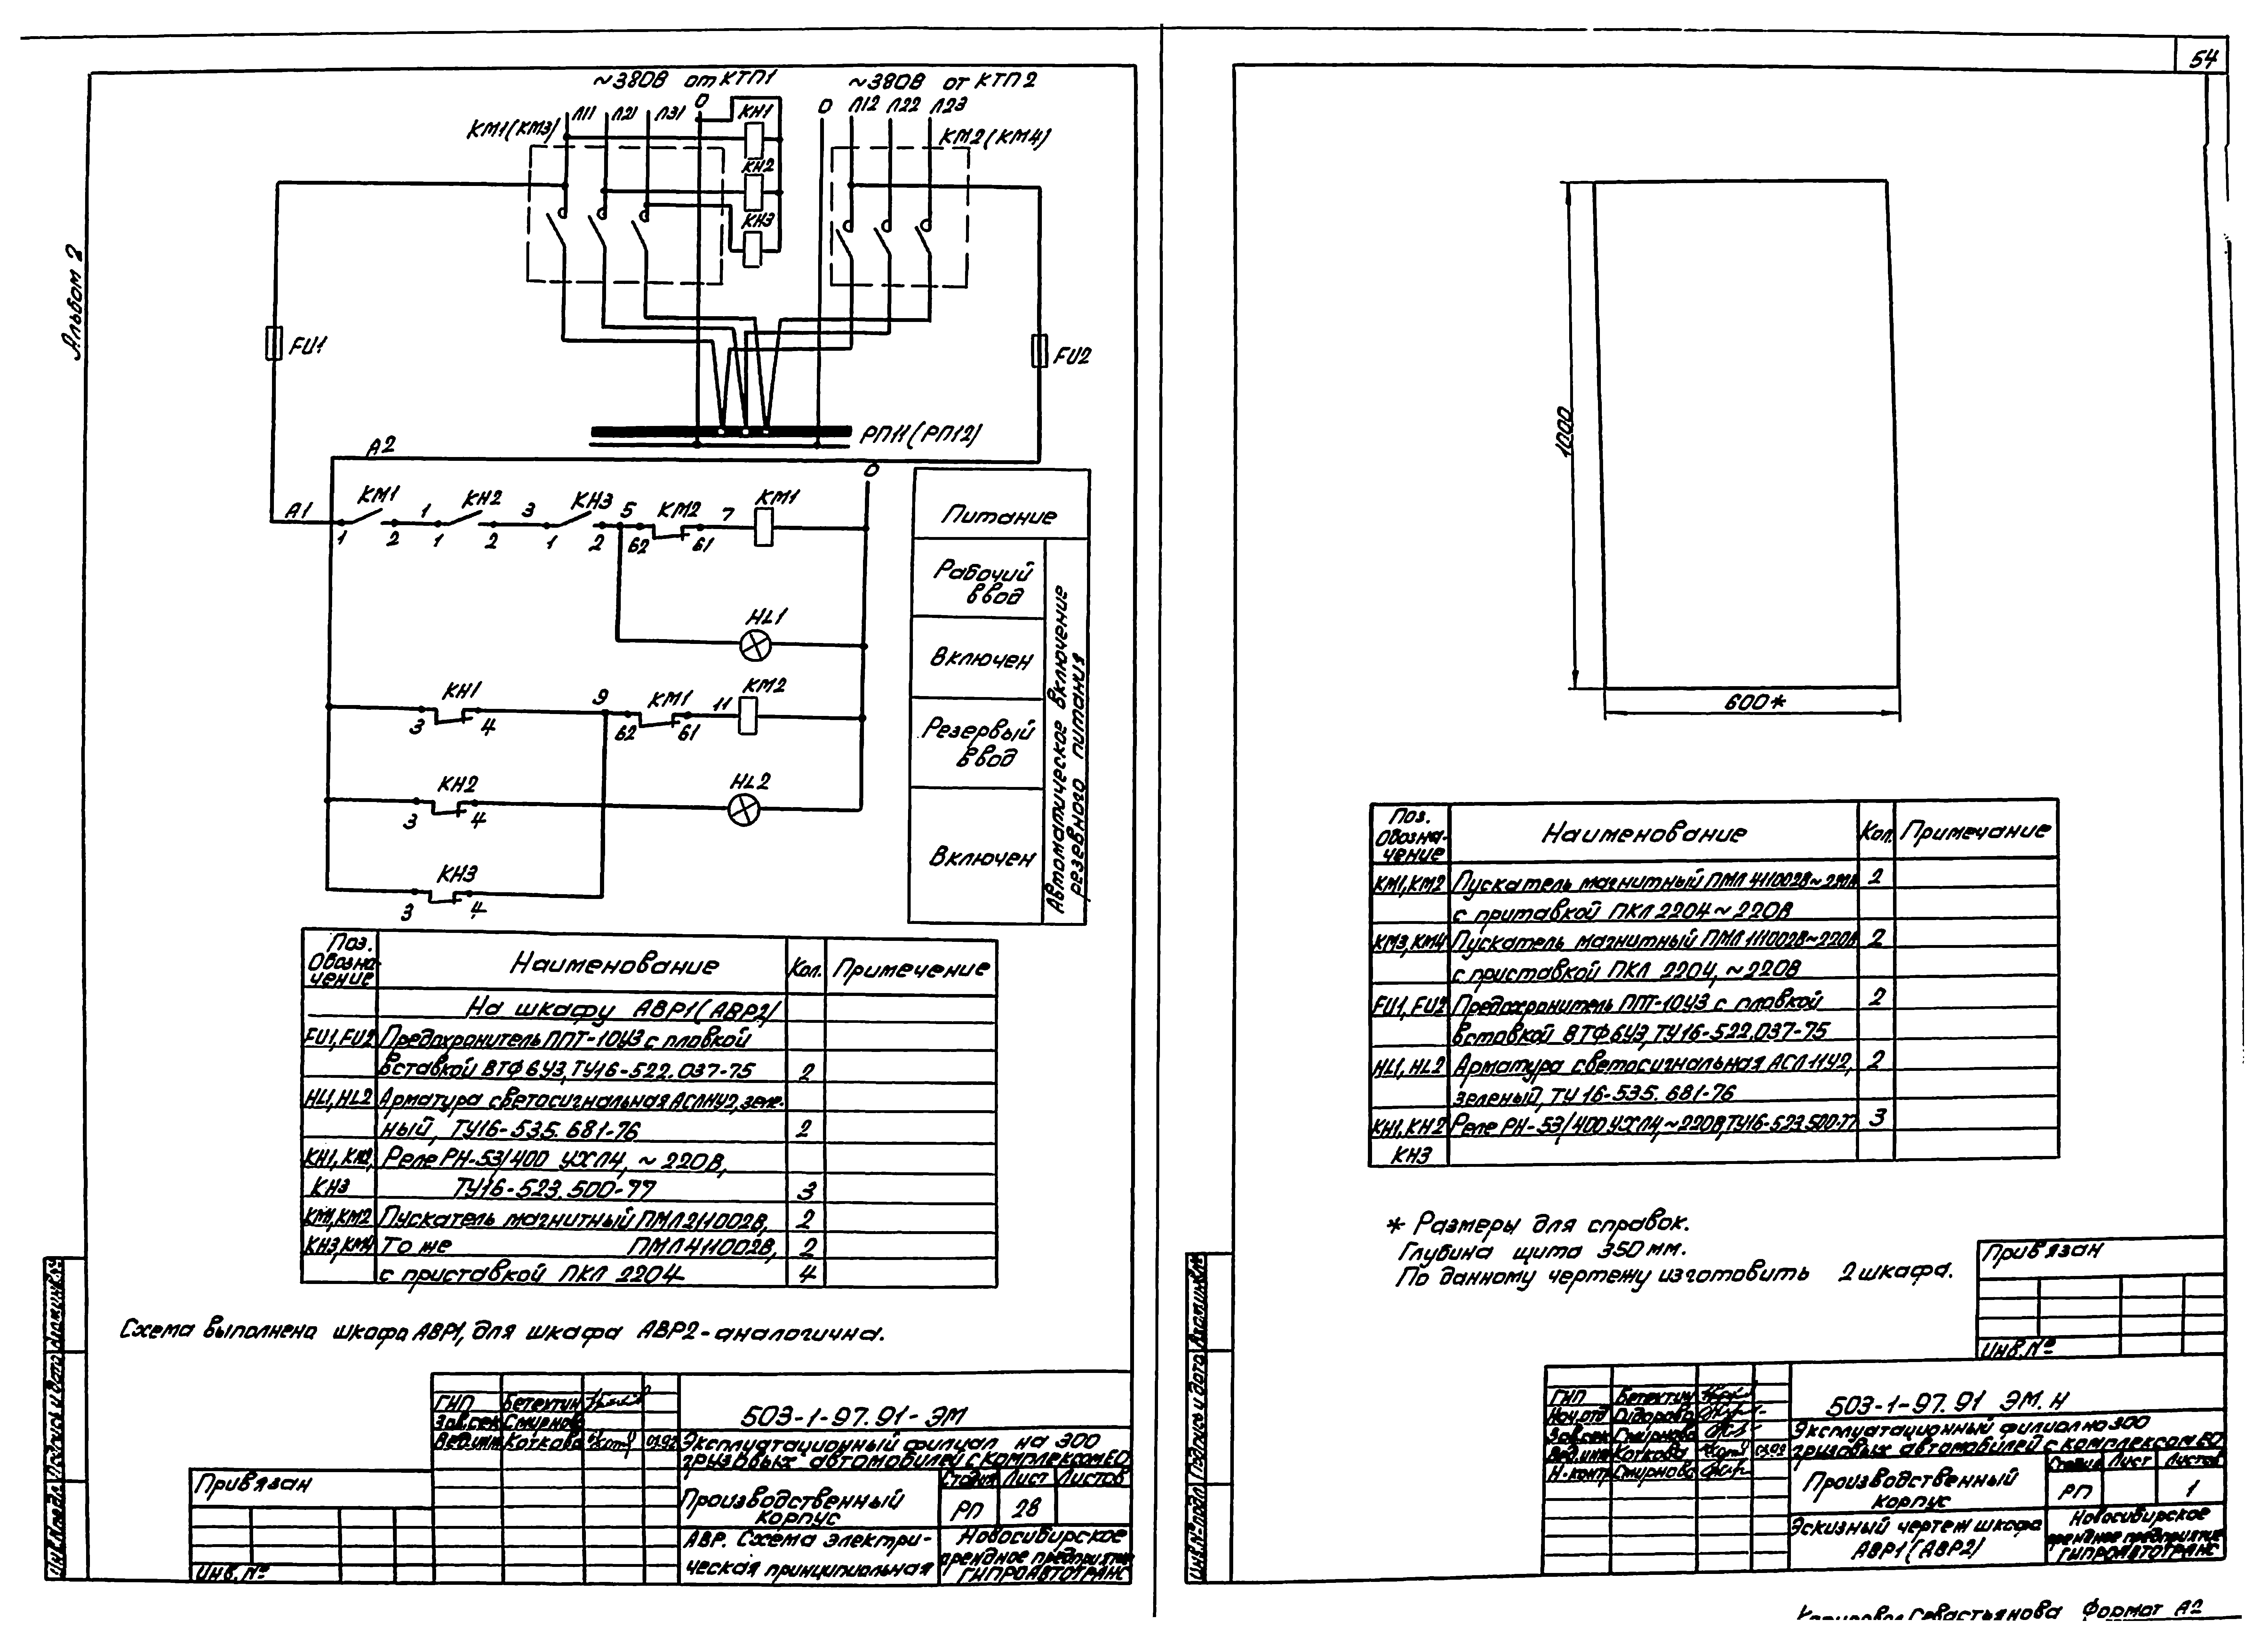 54
Альбом 2
~380В от КТП1
~380В от КТП2
0
Л11
Л21
Л31
КН1
КН2
КН3
КМ1(КМ3)
0
Л12
Л22
Л23
КМ2(КМ4)
FU1
FU2
РП11(РП12)
А2
0
А1
КМ1
1
КН2
3
КН3
5
КМ2
7
КМ1
1
2
1
2
1
2
62
61
HL1
КН1
9
КМ1
11
КМ2
3
4
62
61
КН2
HL2
3
4
КН3
3
4
Питание
Рабочий
ввод
Включен
Резервый
ввод
Включен
Автоматическое включение
резевного питания
Поз.
Обозна-
чение
Наименование
Кол.
Примечение
На шкафу АВР1(АВР2)
FU1,FU2
Предохронитель ППТ-10У3 с плавкой
вставкой ВТФ6У3,ТУ16-522.037-75
2
HL1,HL2
Арматура светосигнальная АСЛ11У2, зеле-
ный, ТУ16-535.681-76
2
КН1,КН2,
Реле РН-53/400 УХЛ4, ~220В,
КН3
ТУ16-523.500-77
3
КМ1,КМ2
Пускатель магнитный ПМЛ211002В,
2
КН3,КМ4
То же ПМЛ411002В,
2
с приставкой ПКЛ 2204
4
Схема выполнена шкафа АВР1, для шкафа АВР2-аналогична.
ГИП Бетехтин
Зав.сек Смирнова
Вед.инж Коткова
503-1-97.91-ЭМ
Эксплуатационный филиал на 300
грузовых автомобилей с комплексом ЕО
Производственный
корпус
Стадия Лист Листов
РП 28
АВР. Схема электри-
ческая принципиальная
Новосибирское
арендное предприятие
ГИПРОАВТОТРАНС
Привязан
Инв.№
Инв.№подл. Подпись и дата Взам.инв.№
1000
600*
Поз.
Обозна-
чение
Наименование
Кол.
Примечание
КМ1,КМ2
Пускатель магнитный ПМЛ 411002В~220В
2
с притавкой ПКЛ 2204~220В
КМ3,КМ4
Пускатель магнитный ПМЛ 111002В~220В
2
с приставкой ПКЛ 2204, ~220В
FU1,FU2
Предохронитель ППТ-10У3 с плавкой
2
вставкой ВТФ6У3,ТУ16-522.037-75
HL1,HL2
Арматура светосигнальная АСЛ11У2,
2
зеленый, ТУ 16-535.681-76
КН1,КН2
Реле РН-53/400 УХЛ4,~220В,ТУ16-523.500-77
3
КН3
* Размеры для справок.
Глубина щита 350мм.
По данному чертежу изготовить 2шкафа.
Привязан
Инв.№
ГИП Бетехтин
Нач.отд Сидорова
Зав.сек Смирнова
Вед.инж Коткова
Н.контр Смирнова
503-1-97.91 ЭМ.Н
Эксплуатационный филиал на 300
грузовых автомобилей с комплексом ЕО
Производственный
корпус
Стадия Лист Листов
РП 1
Эскизный чертеж шкафа
АВР1(АВР2)
Новосибирское
арендное предприятие
ГИПРОАВТОТРАНС
Инв.№подл. Подпись и дата Взам.инв.№
Копировал Севастьянова Формат А2